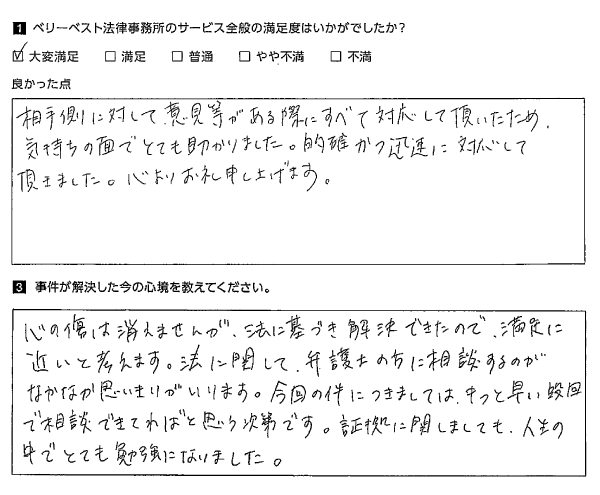 1 ベリーベスト法律事務所のサービス全般の満足度はいかがでしたか?
☑ 大変満足 □ 満足 □ 普通 □ やや不満 □ 不満
良かった点
相手側に対して、意見等がある際にすべて対応して頂いたため、
気持ちの面でとても助かりました。的確かつ迅速に対応して
頂きました。心よりお礼申し上げます。
3 事件が解決した今の心境を教えてください。
心の傷は消えませんが、法に基づき解決できたので、満足に
近いと考えます。法に関して、弁護士の方に相談するのが
なかなか思いきりがいります。今回の件につきましては、もっと早い段階
で相談できてればと思う次第です。証拠に関しましても、人生の
中でとても勉強になりました。